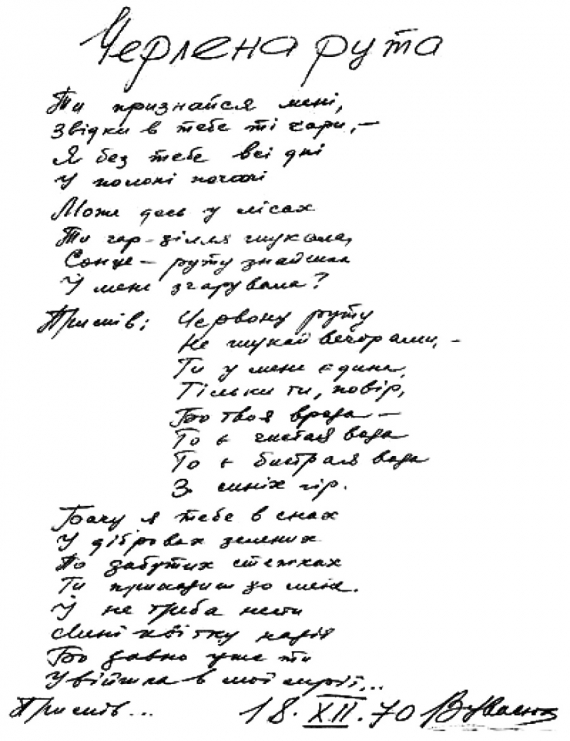 Черлена рута
Ти признайся мені,
Звідки в тебе ті чари, –
Я без тебе всі дні
У полоні печалі
Може десь у лісах
Ти чар-зілля шукала,
Сонце – руту знайшла
І мене зчарувала?
Приспів: Червону руту
Не шукай вечорами, –
Ти у мене єдина,
Тільки ти, повір,
Бо твоя врода –
То є чистая вода
То є бистрая вода
З синіх гір.
Бачу я тебе в снах
У дібровах зелених
По забутих стежках
Ти приходиш до мене.
І не треба нести
Мені квітку надій
Бо давно уже ти
Увійшла в мої мрії...
Приспів... 18.XII.70